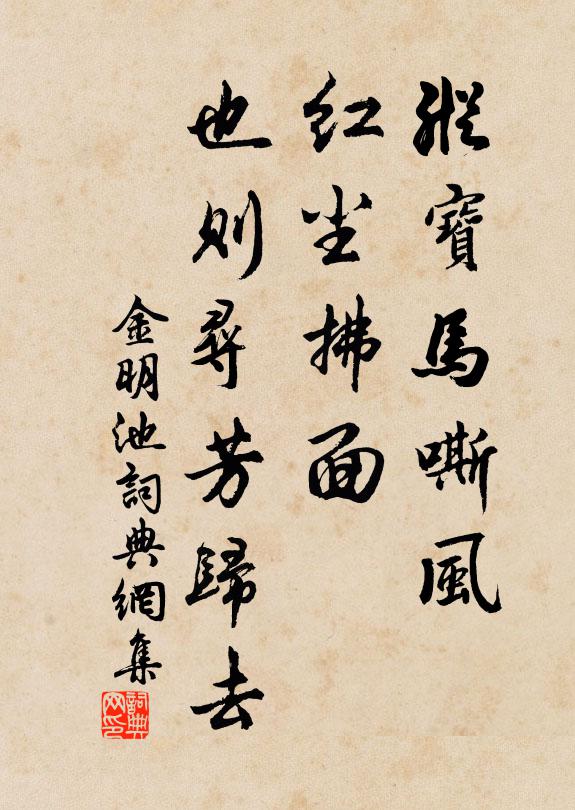 縱寶馬嘶風
紅尘拂面
也则尋芳歸去
金明池詞典網集
詞典网印